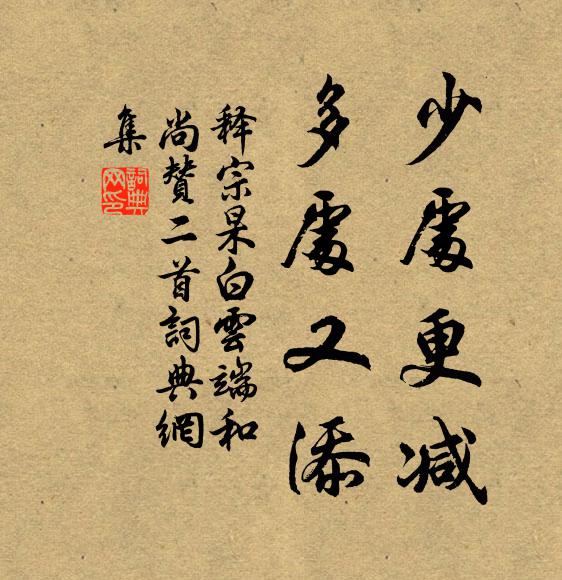 少處更減
多處又添
释宗杲白雲端和
尚贊二首詞典網
集
詞典
网印